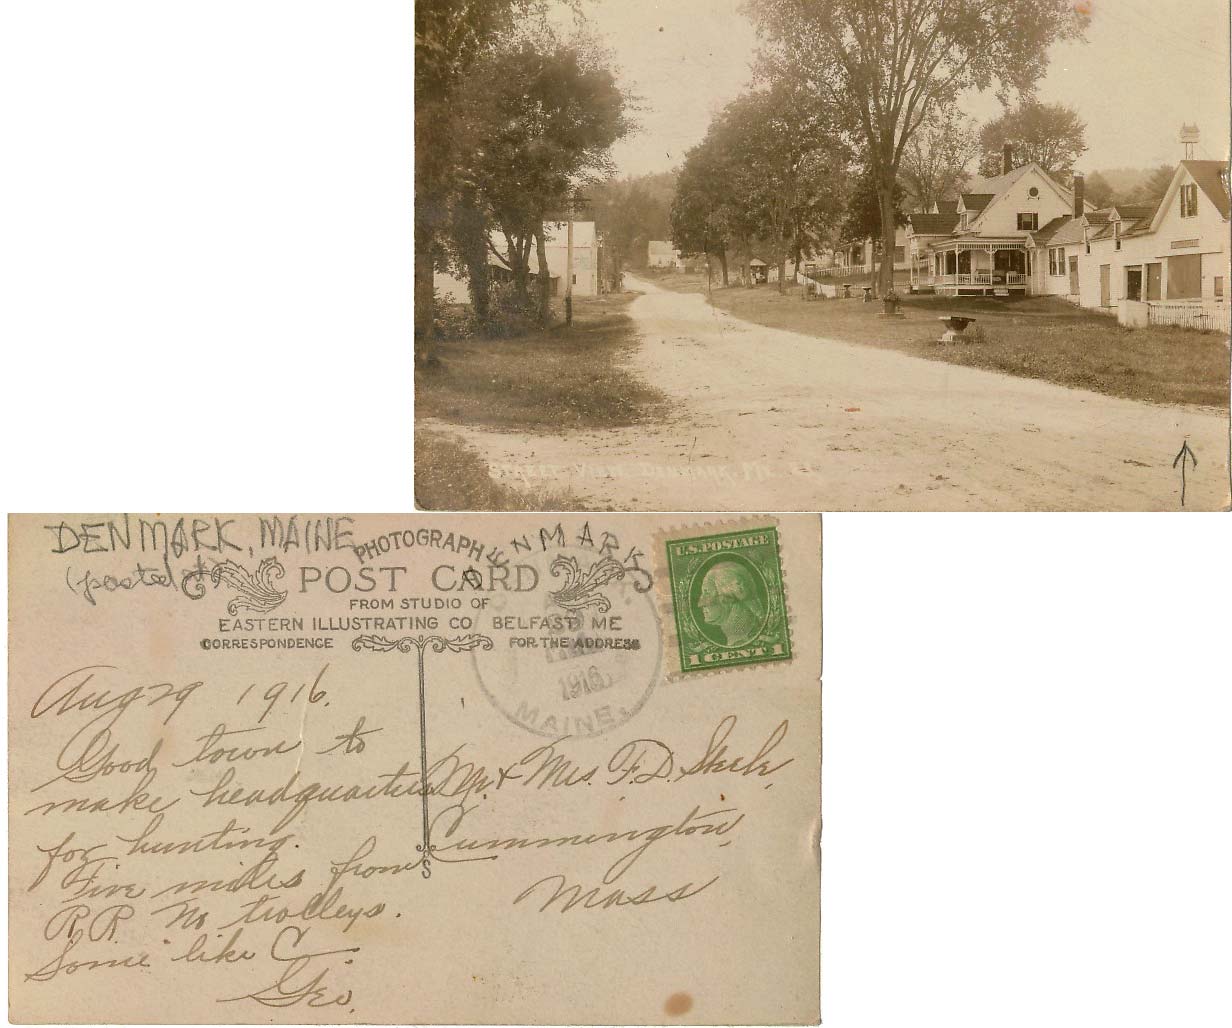 STREET VIEW DENMARK, ME.
DENMARK, MAINE
(posted at)
DENMARK
PHOTOGRAPH
POST CARD
FROM STUDIO OF
EASTERN ILLUSTRATING CO BELFAST ME
CORRESPONDENCE
FOR THE ADDRESS
U.S. POSTAGE
1 CENT 1
1916
MAINE.
Aug 29 1916.
Good town to
make headquarters
for hunting.
Five miles from
R.R. No trolleys.
Some like C—.
Geo.
Mr. & Mrs. F.D. Steele,
Cummington,
Mass